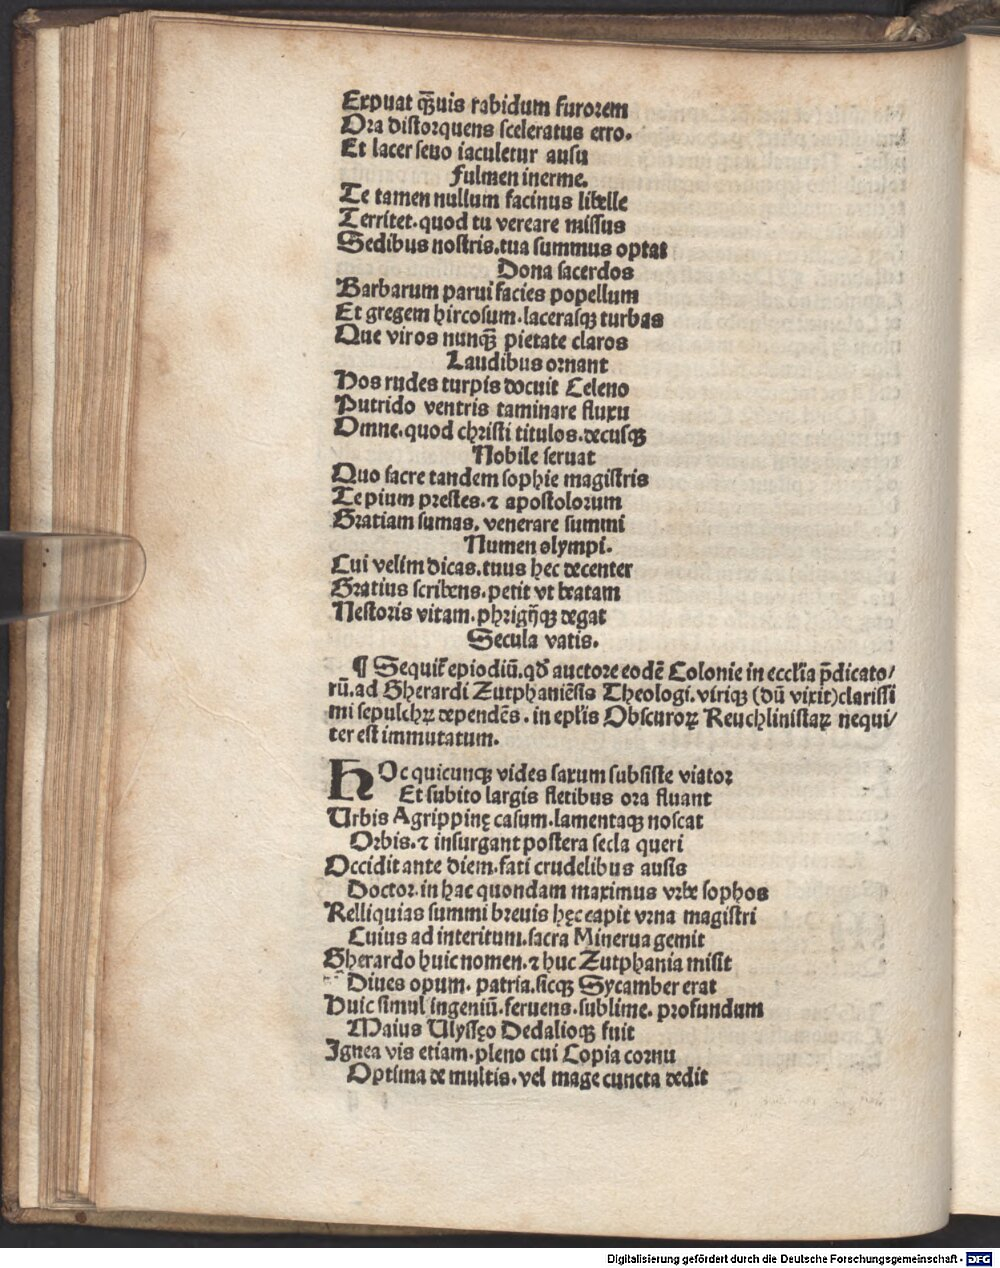 Expuat q̄uis rabidum furorem
Ora distorquens sceleratus erro.
Et lacer seuo iaculetur ausu
Fulmen inerme.
Te tamen nullum facinus libelle
Territet. quod tu vereare missus
Sedibus nostris. tua summus optat
Dona sacerdos
Barbarum parui facies popellum
Et gregem hircosum. lacerasqꝫ turbas
Que viros nunq̄ pietate claros
Laudibus ornant
Hos rudes turpis docuit Celeno
Putrido ventris taminare fluxu
Omne. quod christi titulos. decusqꝫ
Nobile seruat
Quo sacre tandem sophie magistris
Te pium prestes. ⁊ apostolorum
Gratiam sumas. venerare summi
Numen olympi.
Cui velim dicas. tuus hec decenter
Gratius scribens. petit vt beatam
Nestoris vitam. phrigijqꝫ degat
Secula vatis.
¶ Sequit᷑ epiodiū. qd̛ auctore eodē Colonie in eccl̛ia p̄dicato/
rū. ad Gherardi Zutphaniēsis Theologi. viriqꝫ (dū vixit) clarissi
mi sepulchꝝ dependēs. in epl̛is Obscuroꝝ Reuchlinistaꝝ nequi/
ter est immutatum.
HOc quicunqꝫ vides saxum subsiste viator
Et subito largis fletibus ora fluant
Urbis Agrippinę casum. lamentaqꝫ noscat
Orbis. ⁊ insurgant postera secla queri
Occidit ante diem. fati crudelibus ausis
Doctor. in hac quondam maximus vrbe sophos
Relliquias summi breuis hęc capit vrna magistri
Cuius ad interitum. sacra Minerua gemit
Gherardo huic nomen. ⁊ huc Zutphania misit
Diues opum. patria. sicqꝫ Sycamber erat
Huic simul ingeniū. feruens. sublime. profundum
Maius Ulyssęo Dedalioqꝫ fuit
Ignea vis etiam. pleno cui Copia cornu
Optima de multis. vel mage cuncta dedit
Digitalisierung gefördert durch die Deutsche Forschungsgemeinschaft - DFG